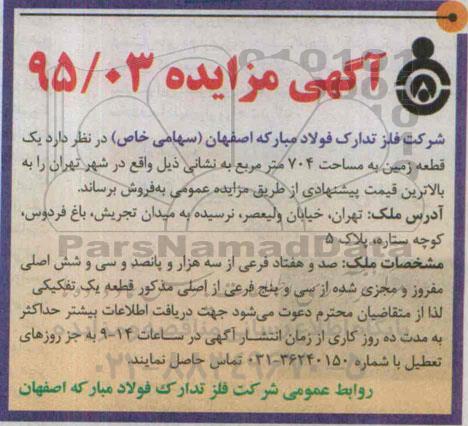 آگهی مزایده ۹۵/۰۳
شرکت فلز تدارک فولاد مبارکه اصفهان (سهامی خاص) در نظر دارد یک
قطعه زمین به مساحت ۷۰۴ متر مربع به نشانی ذیل واقع در شهر تهران را به
بالاترین قیمت پیشنهادی از طریق مزایده عمومی به‌فروش برساند.
آدرس ملک: تهران، خیابان ولیعصر، نرسیده به میدان تجریش، باغ فردوس،
کوچه ستاره، پلاک ۵
ParsNamadData
مشخصات ملک: صد و هفتاد فرعی از سه هزار و پانصد و سی و شش اصلی
مفروز و مجزی شده از سی و پنج فرعی از اصلی مذکور قطعه یک تفکیکی
لذا از متقاضیان محترم دعوت می‌شود جهت دریافت اطلاعات بیشتر حداکثر
به مدت ده روز کاری از زمان انتشار آگهی در ساعات ۱۳-۹ به جز روزهای
تعطیل با شماره ۳۶۲۴۰۱۵۰-۰۳۱ تماس حاصل نمایند.
روابط عمومی شرکت فلز تدارک فولاد مبارکه اصفهان